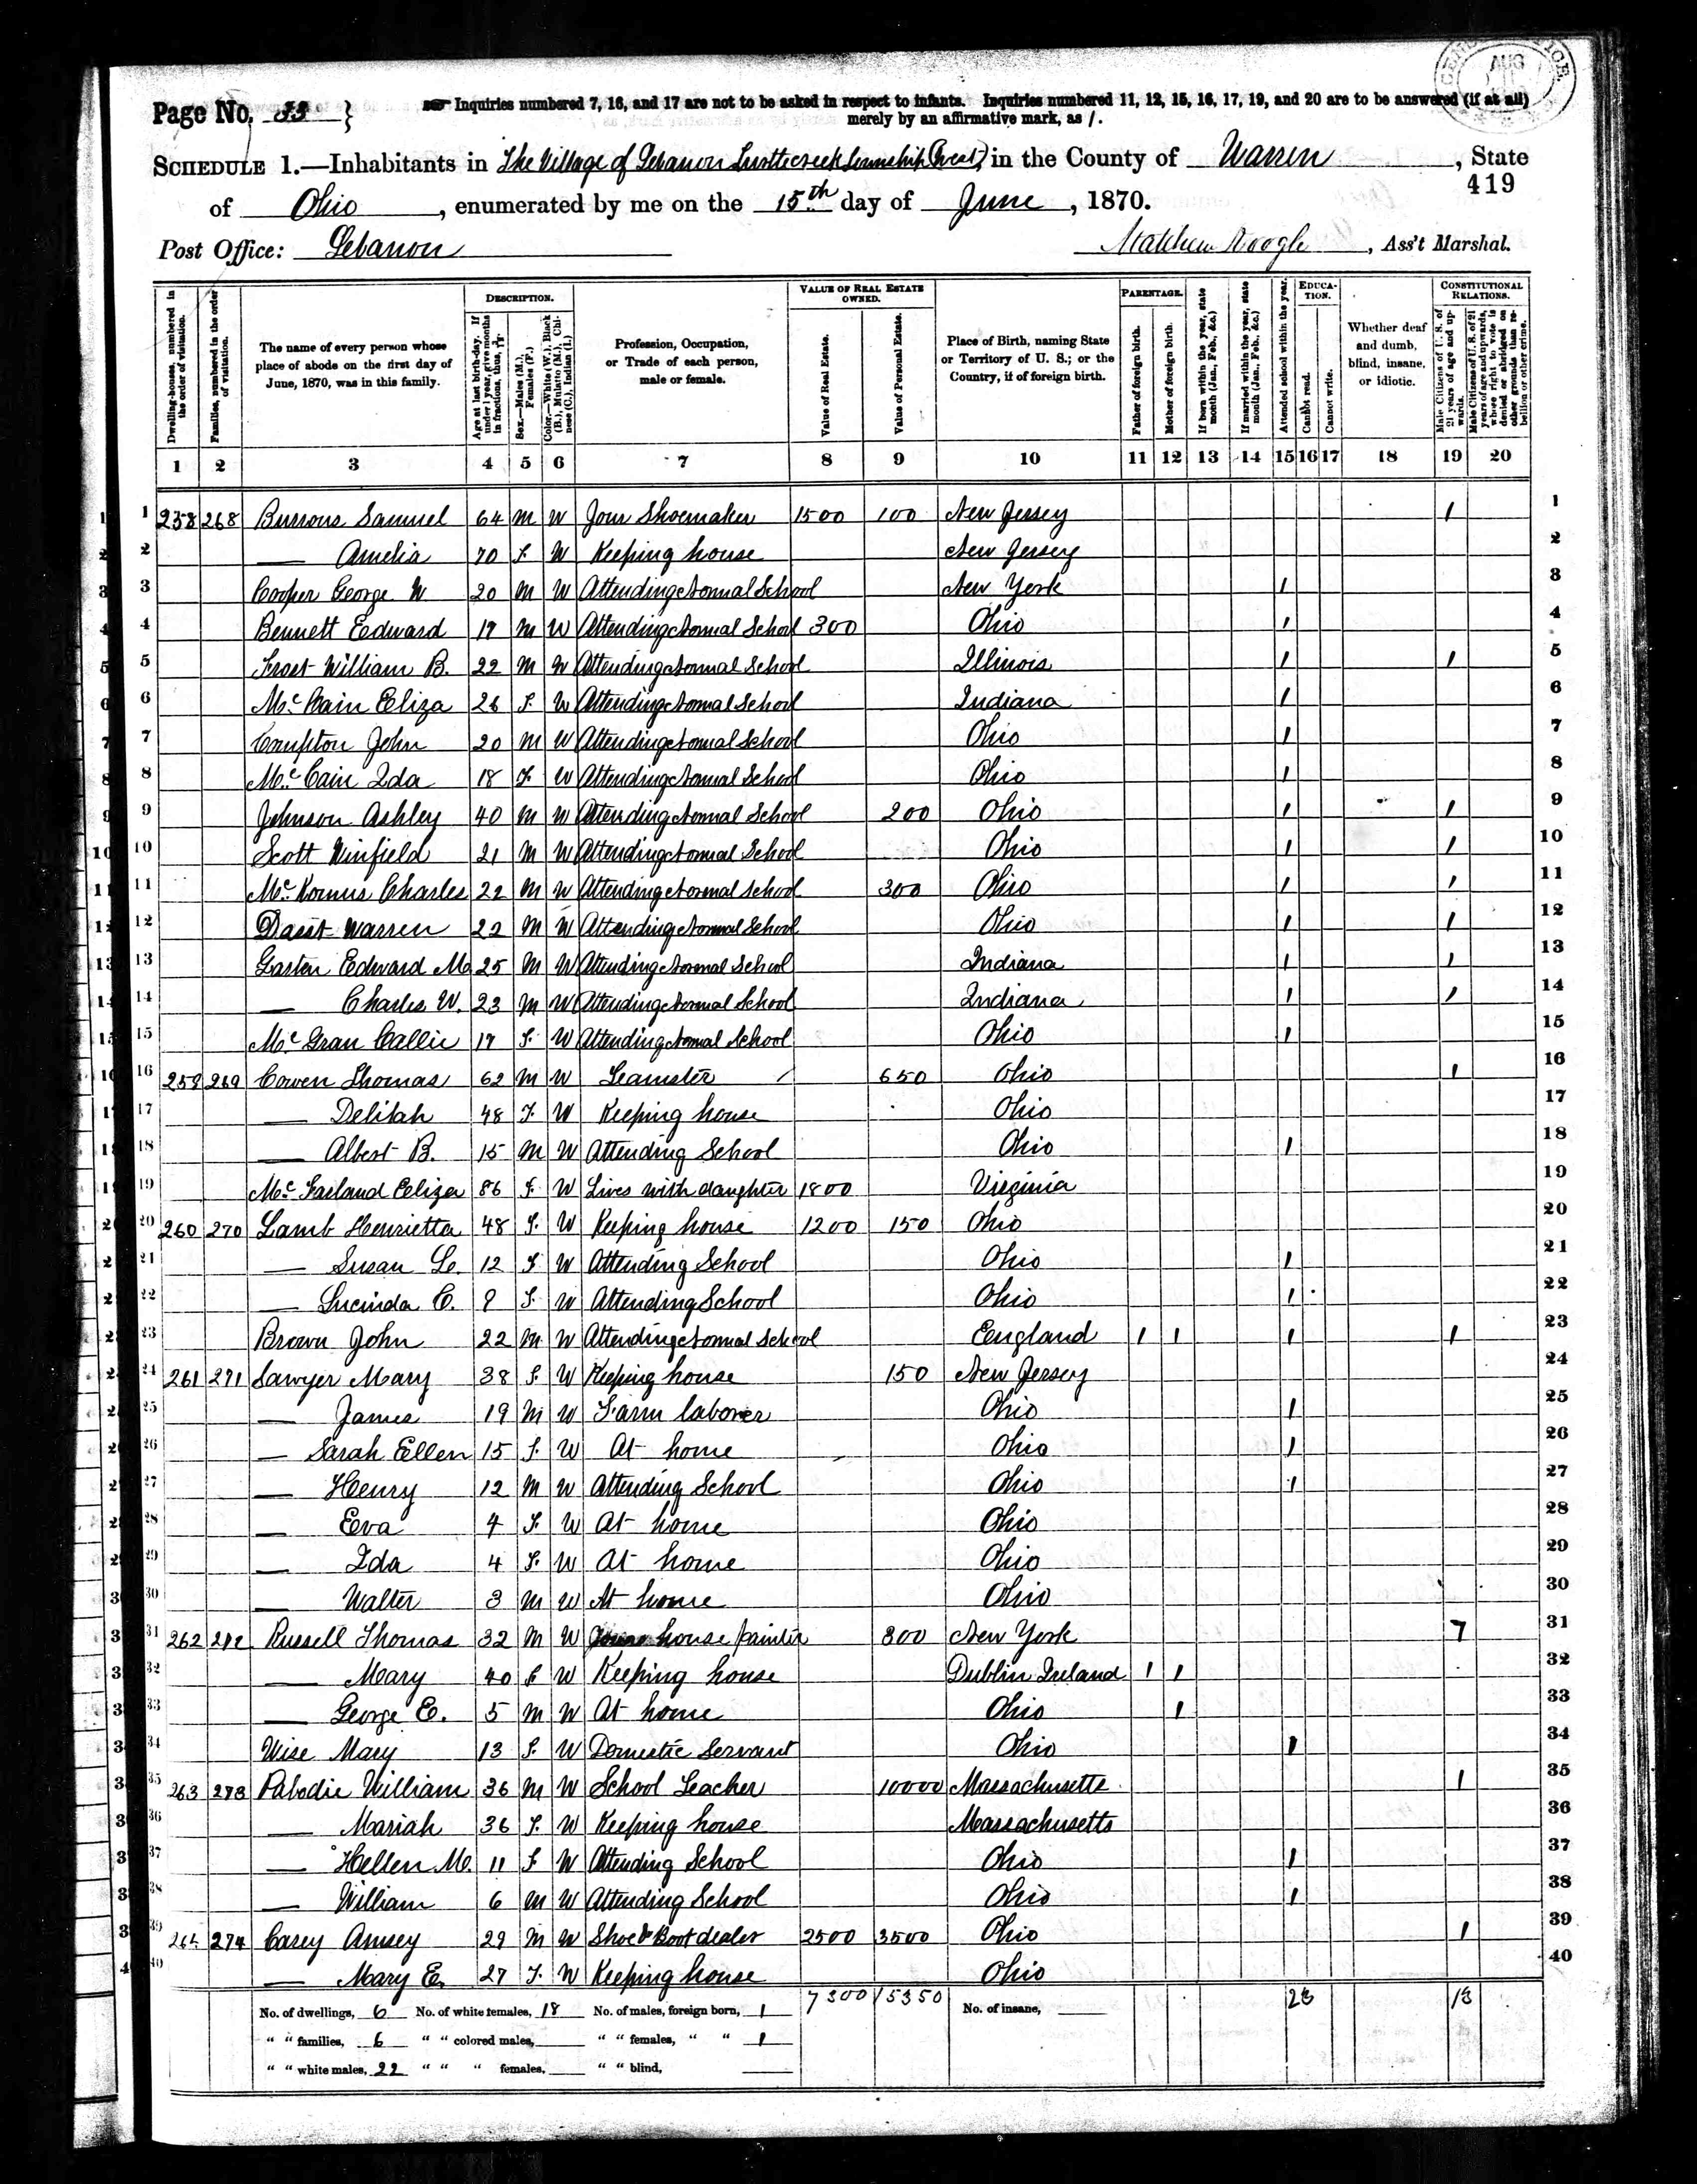 CENSUS OFFICE AUG
Page No. 33 }
Inquiries numbered 7, 16, and 17 are not to be asked in respect to infants. Inquiries numbered 11, 12, 15, 16, 17, 19, and 20 are to be answered (if at all)
merely by an affirmative mark, as /.
SCHEDULE 1.—Inhabitants in The Village of Lebanon Turtlecreek township (West,) in the County of Warren, State
419
of Ohio, enumerated by me on the 15th day of June, 1870.
Post Office: Lebanon
Matthew, Ass't Marshal.
Dwelling-houses, numbered in the order of visitation.
Families, numbered in the order of visitation.
The name of every person whose place of abode on the first day of June, 1870, was in this family.
DESCRIPTION.
Age at last birth-day. If under 1 year, give months in fractions, thus, 3/12.
Sex.—Males (M.), Females (F.)
Color.—White (W.), Black (B.), Mulatto (M.), Chinese (C.), Indian (I.)
Profession, Occupation, or Trade of each person, male or female.
VALUE OF REAL ESTATE OWNED.
Value of Real Estate.
Value of Personal Estate.
Place of Birth, naming State or Territory of U. S.; or the Country, if of foreign birth.
PARENTAGE.
Father of foreign birth.
Mother of foreign birth.
If born within the year, state month (Jan., Feb., &c.)
If married within the year, state month (Jan., Feb., &c.)
Attended school within the year.
EDUCATION.
Cannot read.
Cannot write.
Whether deaf and dumb, blind, insane, or idiotic.
CONSTITUTIONAL RELATIONS.
Male Citizens of U. S. of 21 years of age and upwards.
Male Citizens of U. S. of 21 years of age and upwards, whose right to vote is denied or abridged on other grounds than rebellion or other crime.
1 2 3 4 5 6 7 8 9 10 11 12 13 14 15 16 17 18 19 20
1 258 268 Burrous Samuel 64 M W Jour Shoemaker 1500 100 New Jersey 1 1
2 — Amelia 70 F W Keeping house New Jersey 2
3 Cooper George W 20 M W Attending Normal School New York 1 3
4 Bennett Edward 19 M W Attending Normal School 300 Ohio 1 4
5 Frost William B. 22 M W Attending Normal School Illinois 1 1 5
6 McCain Eliza 26 F. W Attending Normal School Indiana 1 6
7 Compton John 20 M W Attending Normal School Ohio 1 7
8 McCain Ida 18 F. W Attending Normal School Ohio 1 8
9 Johnson Ashley 40 M W Attending Normal School 200 Ohio 1 1 9
10 Scott Winfield 21 M W Attending Normal School Ohio 1 1 10
11 Charles 22 M W Attending Normal School 300 Ohio 1 1 11
12 Warren 22 M W Attending Normal School Ohio 1 1 12
13 Edward Mc 25 M W Attending Normal School Indiana 1 1 13
14 — Charles W. 23 M W Attending Normal School Indiana 1 1 14
15 Callie 17 F. W Attending Normal School Ohio 1 15
16 259 269 Cowen Thomas 62 M W Teamster 650 Ohio 1 16
17 — Delilah 48 F. W Keeping house Ohio 17
18 — Albert B. 15 M W Attending School Ohio 1 18
19 McFarland Eliza 86 F. W Lives with daughter 1800 Virginia 19
20 260 270 Lamb Henrietta 48 F. W Keeping house 1200 150 Ohio 20
21 — Susan L. 12 F W Attending School Ohio 1 21
22 — Lucinda C. 9 F. W Attending School Ohio 1 22
23 Brown John 22 M W Attending Normal School England 1 1 1 1 23
24 261 271 Sawyer Mary 38 F. W Keeping house 150 New Jersey 24
25 — James 19 M W Farm laborer Ohio 1 25
26 — Sarah Ellen 15 F. W At home Ohio 1 26
27 — Henry 12 M W Attending School Ohio 1 27
28 — Eva F. W At home Ohio 28
29 — Ida 4 F. W At home Ohio 29
30 — Walter 3 M W At home Ohio 30
31 262 272 Russell Thomas 32 M W house painter 800 New York 1 31
32 — Mary 40 F W Keeping house Dublin Ireland 1 1 32
33 — George E. 5 M W At home Ohio 1 33
34 Wise Mary 13 F. W Domestic Servant Ohio 1 34
35 263 273 Pabodie William 36 M W School Teacher 10000 Massachusetts 1 35
36 — Mariah 36 F. W Keeping house Massachusetts 36
37 — Hellen M. 11 F W Attending School Ohio 1 37
38 — William 6 M W Attending School Ohio 1 38
39 264 274 Casey Amsey 29 M W Shoe & Boot dealer 2500 3500 Ohio 1 39
40 — Mary E. 27 F. W Keeping house Ohio 40
No. of dwellings, 6 No. of white females, 18 No. of males, foreign born, 1 7300 15350 No. of insane, 23 13
" " families, 6 " " colored males, " " females, " " 1
" " white males, 22 " " " females, " " blind,